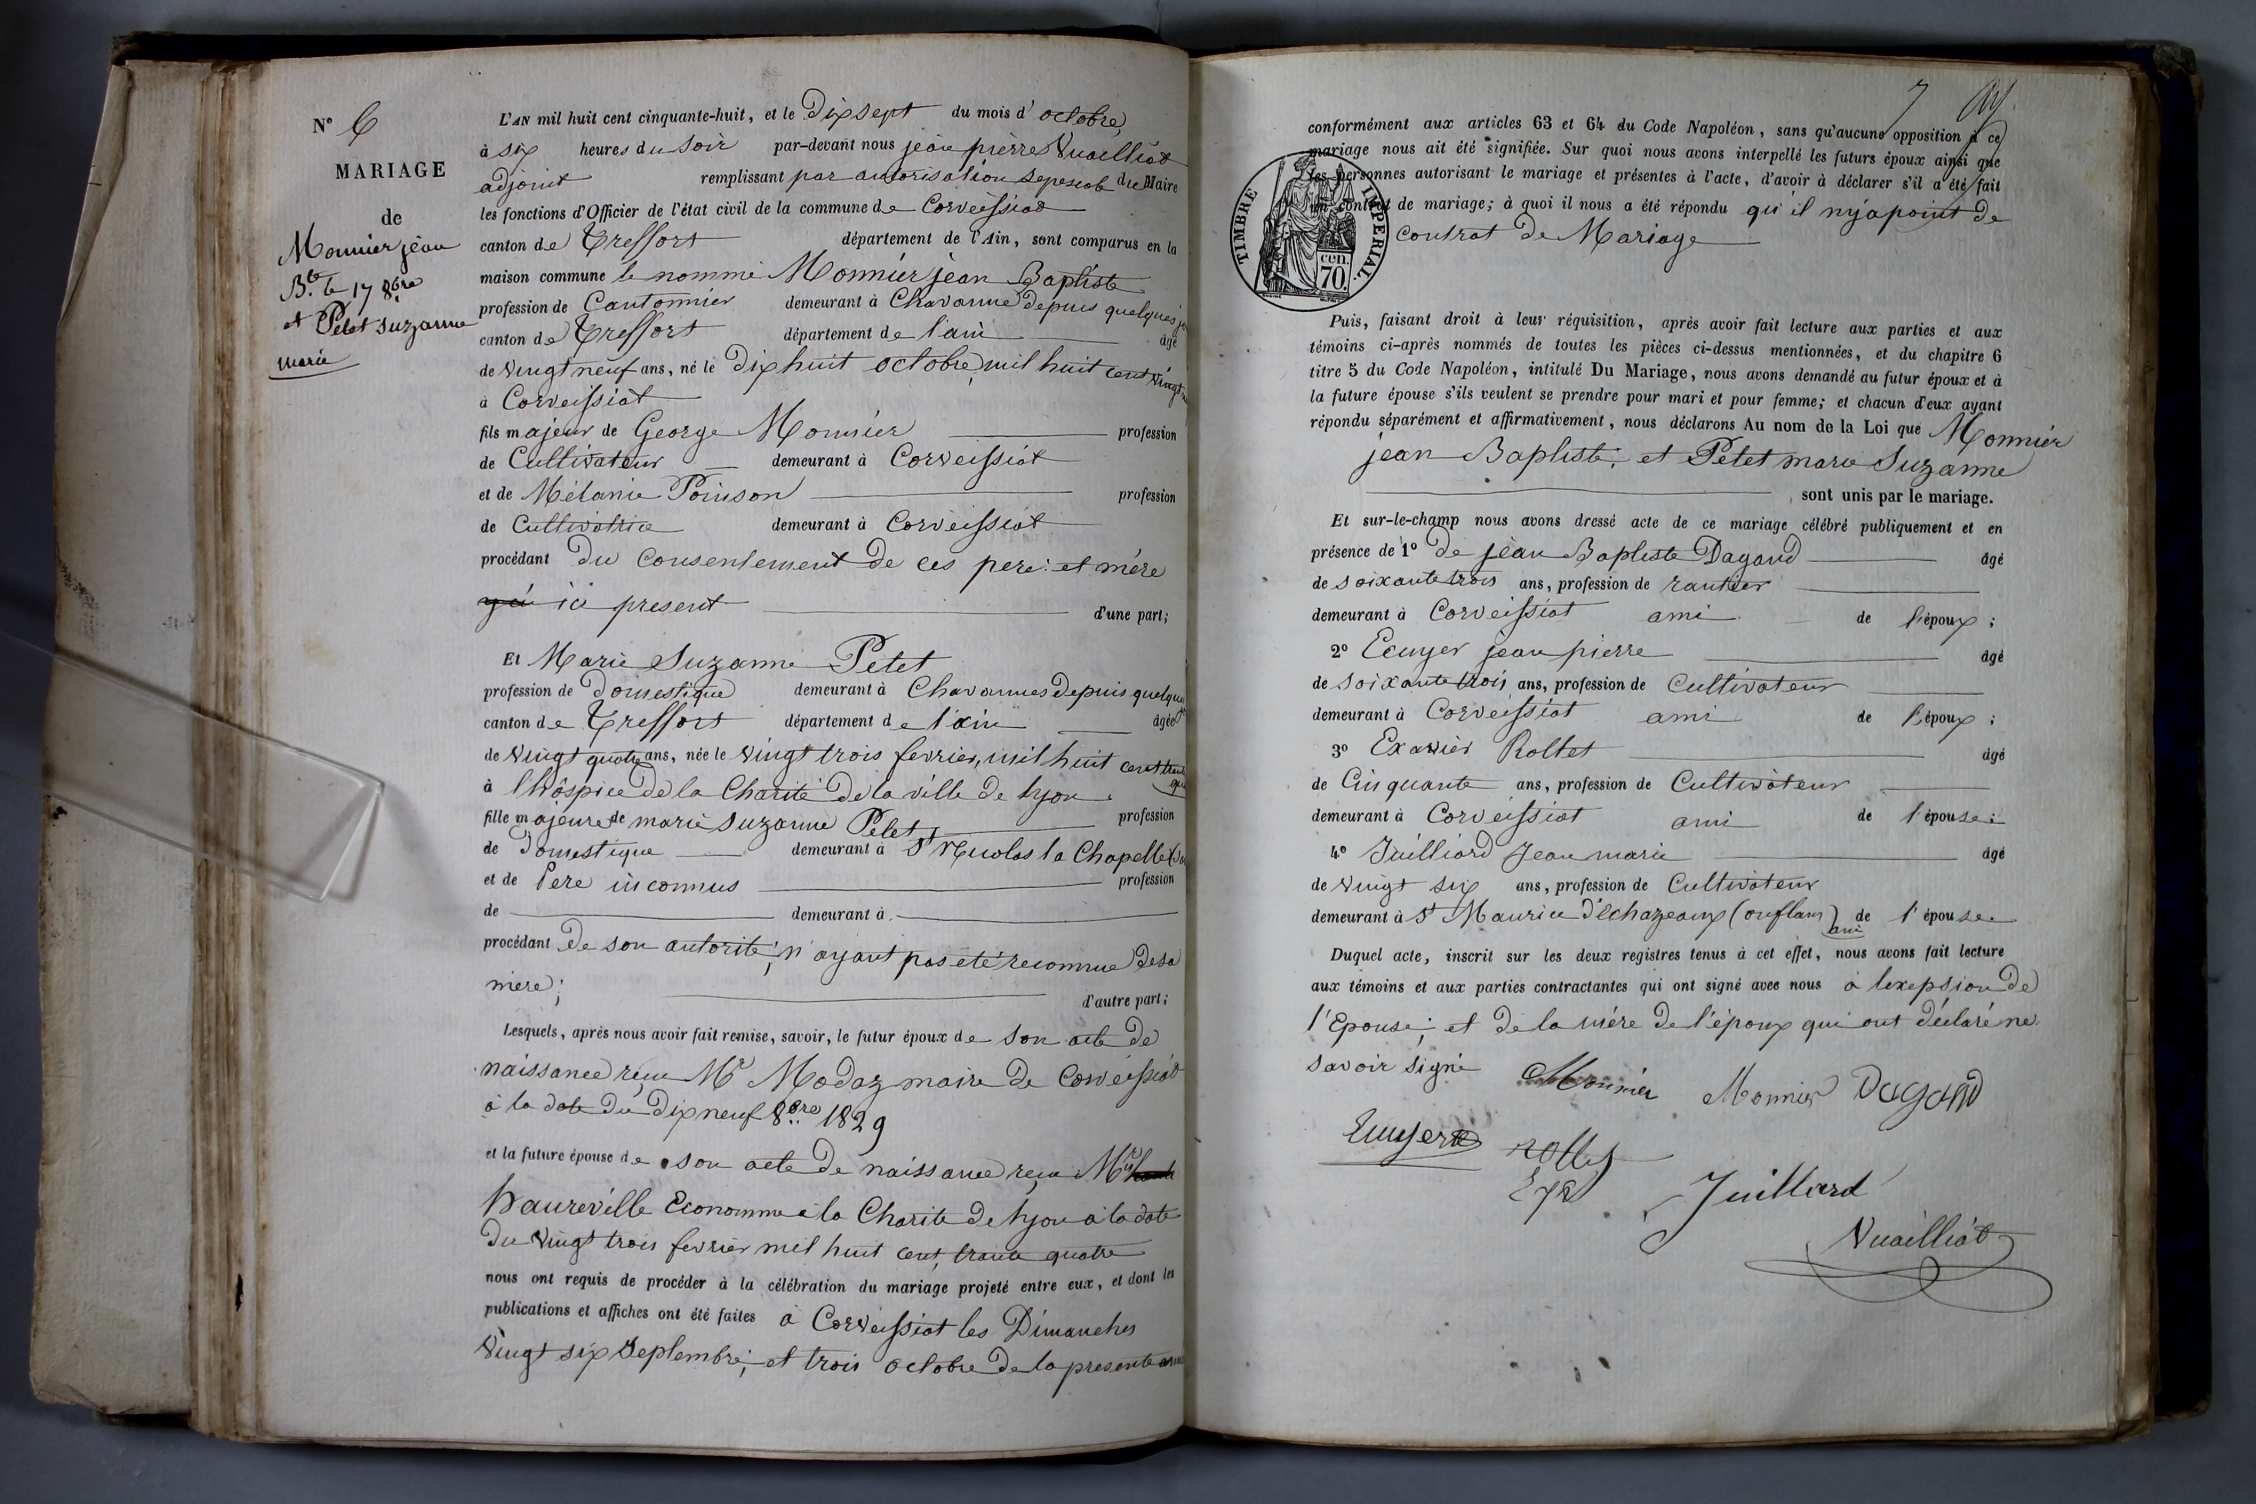 N° 6
MARIAGE
de
Monnier jèan
B.te le 17 8bre
et Pelet suzanne
marie
L'AN mil huit cent cinquante-huit, et le Dix sept du mois d'octobre,
à six heures du soir par-devant nous jèan pièrre Vuailliat
adjoint remplissant par autorisation du Maire
les fonctions d'Officier de l'état civil de la commune de Corveissiat
canton de Treffort département de l'Ain, sont comparus en la
maison commune le nommé Monnier jèan Baptiste
profession de Cantonnier demeurant à Chavanne depuis quelques
canton de Treffort département de l'ain âgé
de Vingt neuf ans, né le Dix huit octobre, mil huit cent vingt
à Corveissiat
fils majeur de George Monnièr profession
de Cultivateur demeurant à Corveissiat
et de Mélanie Poinson profession
de Cultivatrice demeurant à Corveissiat
procédant Du consentement de ces pere et mére
ici present d'une part;
Et Marie Suzanne Pelet
profession de Domestique demeurant à Chavannes Depuis quelque
canton de Treffort département de l'ain âgée
de Vingt quatre ans, née le Vingt trois fevrier, mil huit cent
à l'hôspice De la Charité De la ville De lyon.
fille majeure de marie Suzanne Pelet profession
de Domestique demeurant à St Nicolas la Chapelle
et de Pere inconnus profession
de demeurant à
procédant De son autorité; n'ayant pas été reconnue De sa
mère; d'autre part;
Lesquels, après nous avoir fait remise, savoir, le futur époux de son acte de
naissance reçu Mr Modaz maire de Corveissiat
à la date Du Dix neuf 8bre 1829
et la future épouse de son acte De naissance reçu Mr
haureville Economme à la Charite De lyon à la date
Du Vingt trois fevrier mil huit cent trente quatre
nous ont requis de procéder à la célébration du mariage projeté entre eux, et dont les
publications et affiches ont été faites à Corveissiat les Dimanches
Vingt six Septembre; et trois octobre De la presente
7
conformément aux articles 63 et 64 du Code Napoléon, sans qu'aucune opposition à ce
mariage nous ait été signifiée. Sur quoi nous avons interpellé les futurs époux ainsi que
les personnes autorisant le mariage et présentes à l'acte, d'avoir à déclarer s'il a été fait
un contrat de mariage; à quoi il nous a été répondu qu'il n'y a point De
contrat De Mariage
TIMBRE IMPÉRIAL.
cen.
70.
Puis, faisant droit à leur réquisition, après avoir fait lecture aux parties et aux
témoins ci-après nommés de toutes les pièces ci-dessus mentionnées, et du chapitre 6
titre 5 du Code Napoléon, intitulé Du Mariage, nous avons demandé au futur époux et à
la future épouse s'ils veulent se prendre pour mari et pour femme; et chacun d'eux ayant
répondu séparément et affirmativement, nous déclarons Au nom de la Loi que Monnièr
jean Baptiste; et Pelet marie Suzanne
sont unis par le mariage.
Et sur-le-champ nous avons dressé acte de ce mariage célébré publiquement et en
présence de 1° De jèan Baptiste Dagand âgé
de soixante trois ans, profession de rantier
demeurant à Corveissiat ami de l'époux;
2° Ecuyer jean pierre âgé
de soixante trois ans, profession de Cultivateur
demeurant à Corveissiat ami de l'époux;
3° Exavièr Rollet âgé
de Cinquante ans, profession de Cultivateur
demeurant à Corveissiat ami de l'épouse;
4° Juilliard Jean marie âgé
de Vingt six ans, profession de Cultivateur
demeurant à St Maurice d'Echazeaux (onflans) ami de l'épouse.
Duquel acte, inscrit sur les deux registres tenus à cet effet, nous avons fait lecture
aux témoins et aux parties contractantes qui ont signé avec nous à lexepsion De
l'Epouse; et De la mére De l'époux qui ont déclaré ne
savoir signé
Monnier Monnier Dagand
Ecuyer rollet
Juilliard
Vuailliat